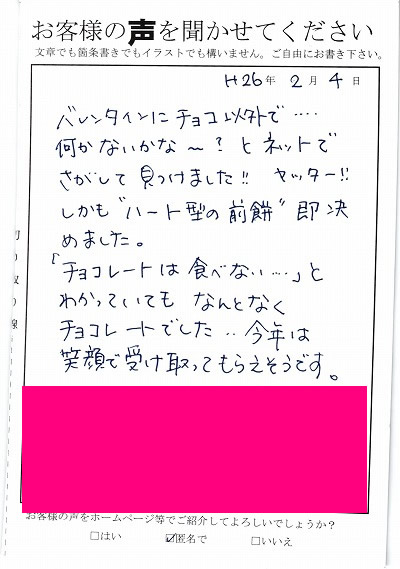 お客様の声を聞かせてください
文章でも箇条書きでもイラストでも構いません。ご自由にお書き下さい。
H26年 2月 4日
バレンタインにチョコ以外で‥‥
何かないかな～?とネットで
さがして見つけました!! ヤッター!!
しかも"ハート型の前餅"即決
めました。
「チョコレートは食べない…」と
わかっていても なんとなく
チョコレートでした‥今年は
笑顔で受け取ってもらえそうです。
お客様の声をホームページ等でご紹介してよろしいでしょうか?
□はい ☑匿名で □いいえ